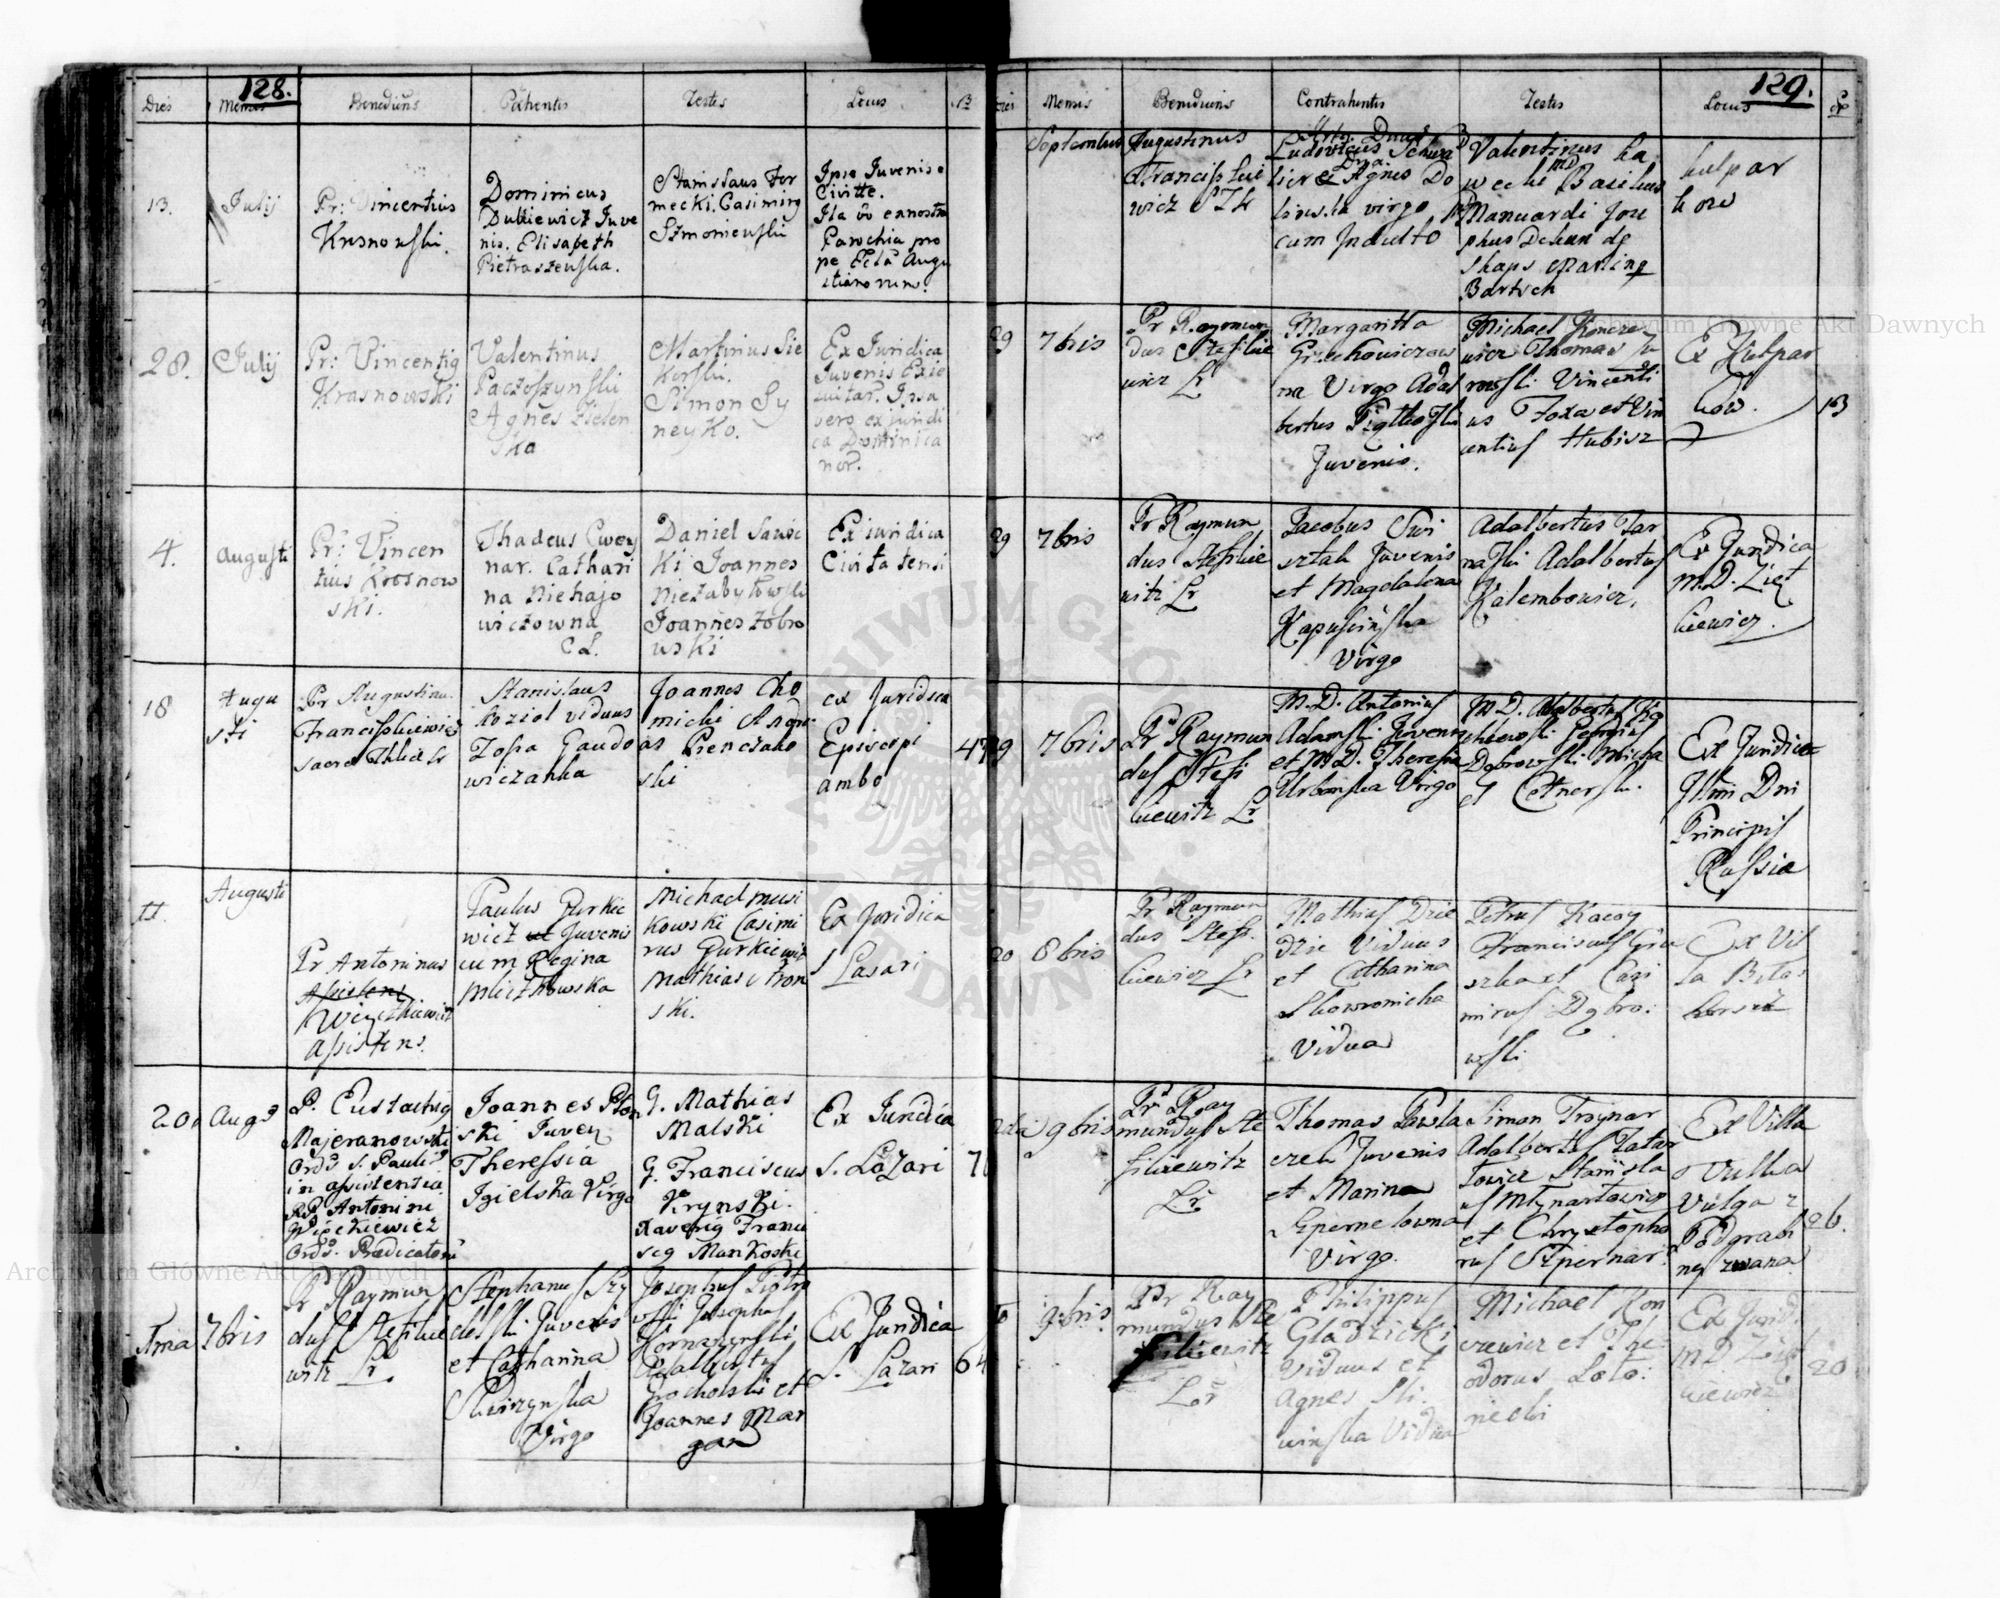 128.
Dies Mensis Benedicens Patientes Testes Locus
13. Julij
Pr: Vincentius
Krasnowski.
Dominicus
Dulkiewicz Juve
nis. Elisabeth
Pietraszewska.
Stanislaus For
mecki. Casimirg
Szmoniewski
Ipse Juvenis e
Civitte.
Ila vo ex nostra
Parochia pro
pe Ecla Augu
stianorum.
28. Julij
Pr: Vincentig
Krasnowski
Valentinus
Paczoszynski
Agnes Zielen
ska
Martinus Sie
korski.
Simon Sy
neyko.
Ex Juridica
Juvenis Exie
zuitar. Ipsa
vero ex juridi
ca Dominica
nor.
4. Augusti
Pr: Vincen
tius Krosnow
ski.
Thadeus Cwey
nar. Cathari
na Niehajo
wiczowna
C L.
Daniel Sawic
ki Joannes
Niezabytowski
Joannes Zobro
wski
Ex iuridica
Civitatensi
18 Augu
sti
Pr Augustinu
Franciszkiewicz
Stanislaus
Koziol viduus
Zofia Gaudo
wiczanka
Joannes Cho
micki Andre
as Pienczako
ski
ex Juridica
Episcopi
ambo
47
11. Augusti
Pr Antoninus
Więckiewicz
Assistens.
Paulus Gurkie
wicz Juvenis
cum Regina
Miczkowska
Michael Musi
kowski Casimi
rus Gurkiewicz
Mathias Ctron
ski.
Ex Juridica
S Lasari
20 Aug
P. Eustachig
Majeranowski
Ord. S. Pauli
in assistentia
RP Antonini
Więckiewicz
Ord. Prædicatoru
Joannes Plon
ski Juven
Theressia
Igielska Virgo
G. Mathias
Malski
G. Franciscus
Krynski.
Xaverig Franci
scg Mankoski
Ex Juridica
S. Lazari
7bris
Pr Raymun
dus Stefkie
witz Lr
Stephanus Szy
delski Juvenis
et Catharina
Skwirzynska
Virgo
Josephus Piotro
wski Josephus
Adalbertus
Grocholski et
Joannes Mar
gan
Ex Juridica
S. Lazari
64
129.
Mensis Benedicens Contrahentes Testes Locus
Septembris
Augustinus
Franciszkie
wicz SThL
Ludovicus Schwa
licr et Agnes Do
linska virgo
cum Indulto
Valentinus Ka
wecki MD Basilius
Manuardi Jose
phus Dehan de
Shaps Marting
Bartsch
kulpar
kow
29 7bris
Pr Raymun
dus Stefkie
wicz Lr
Margaritta
Grzechowiczow
na Virgo Adal
bertus Piątkoski
Juvenis.
Michael Koncze
wicz Thomas Ju
rowski Vincenti
us Foxa et Vin
centius Hubisz
Ex Kulpar
kow.
13
29 7bris
Pr Raymun
dus Stefkie
witz Lr
Jacobus Swi
sztak Juvenis
et Magdalena
Kapuścińska
Virgo
Adalbertus Tar
naski Adalbertus
Kalembowicz.
Ex Juridica
M.D. Ziet
kiewicz.
29 7bris
Pr Raymun
dus Stefi
kiewitz Lr
M.D. Antonius
Adamski Juvenis
et M.D. Theresia
Urbanska Virgo
M.D. Adalbertus
Dobrowski Micha
el Cetnerski.
Ex Juridica
Illmi Dni
Principis
Russiæ
20 8bris
Pr Raymun
dus Stefi
kiewicz Lr
Mathias Dzie
dzic Viduus
et Catharina
Skowronicha
Vidua
Petrus Kaczy
Franciscus Gru
szka et Casi
mirus Dąbro:
wski
Ex Vil
la Bilo
horszcz
9bris
Pr Ray
mundus Ste
fikiewitz
Lr.
Thomas Pawla
czek Juvenis
et Marina
Spernelowna
Virgo.
Simon Troynar
Adalbert Tatar
Towicz Stanisla
us Młynartowicz
et Chrystopho
rus Szpernar.
Ex Villa
Vulka
Vulga
Podgrab
ney zwana
26.
9bris
Pr Ray
mundus Ste
fikiewitz
Lr
Philippus
Gladzicki
Viduus et
Agnes Sli
winska Vidua
Michael Kon
czewicz et The
odorus Loto
niecki
Ex Jurid:
MD Ziet
kiewicz
20
Archiwum Główne Akt Dawnych
Archiwum Główne Akt Dawnych
ARCHIWUM GŁÓWNE AKT DAWNYCH